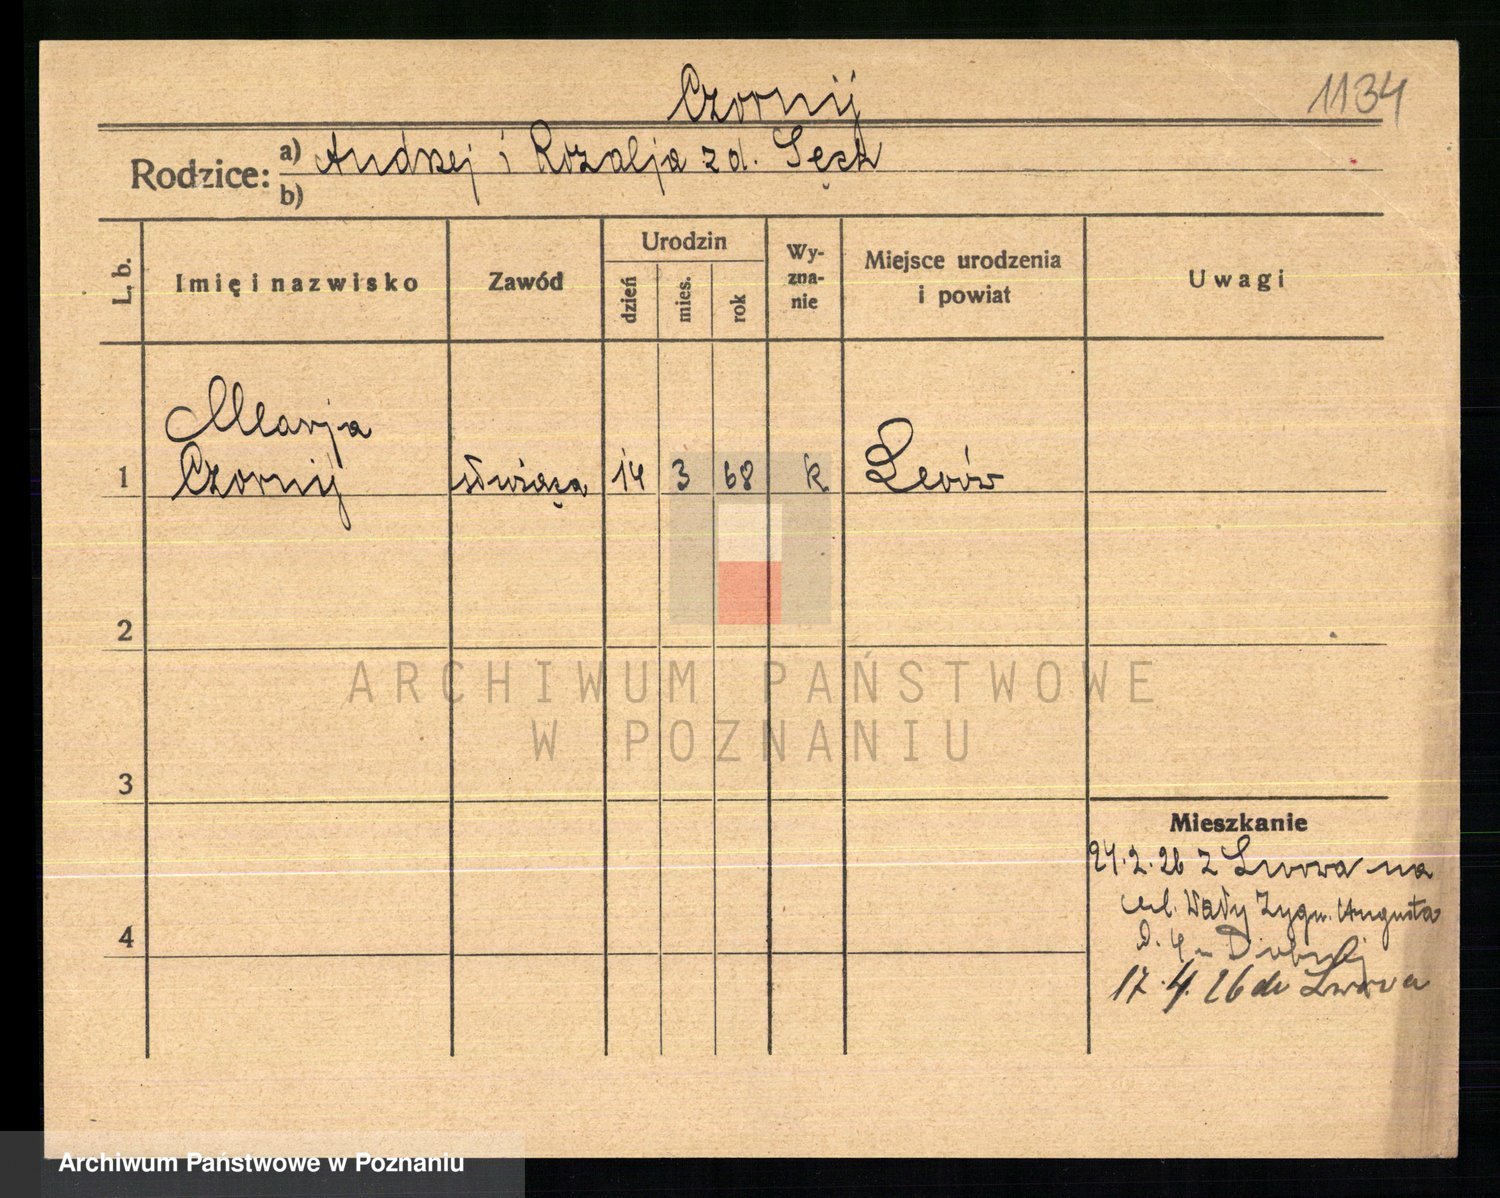 Czornij
1134
Rodzice: a) Andrzej i Rozalja z d. Sęk
b)
L. b.
Imię i nazwisko
Zawód
Urodzin
dzień
mies.
rok
Wy-
zna-
nie
Miejsce urodzenia
i powiat
Uwagi
Marja
1 Czornij służąca 14 3 68 k Lwów
2
ARCHIWUM PAŃSTWOWE
W POZNANIU
3
Mieszkanie
24.2.26 z Lwowa na
ul. Wały Zygm. Augusta
4
17.4.26 do Lwowa
Archiwum Państwowe w Poznaniu